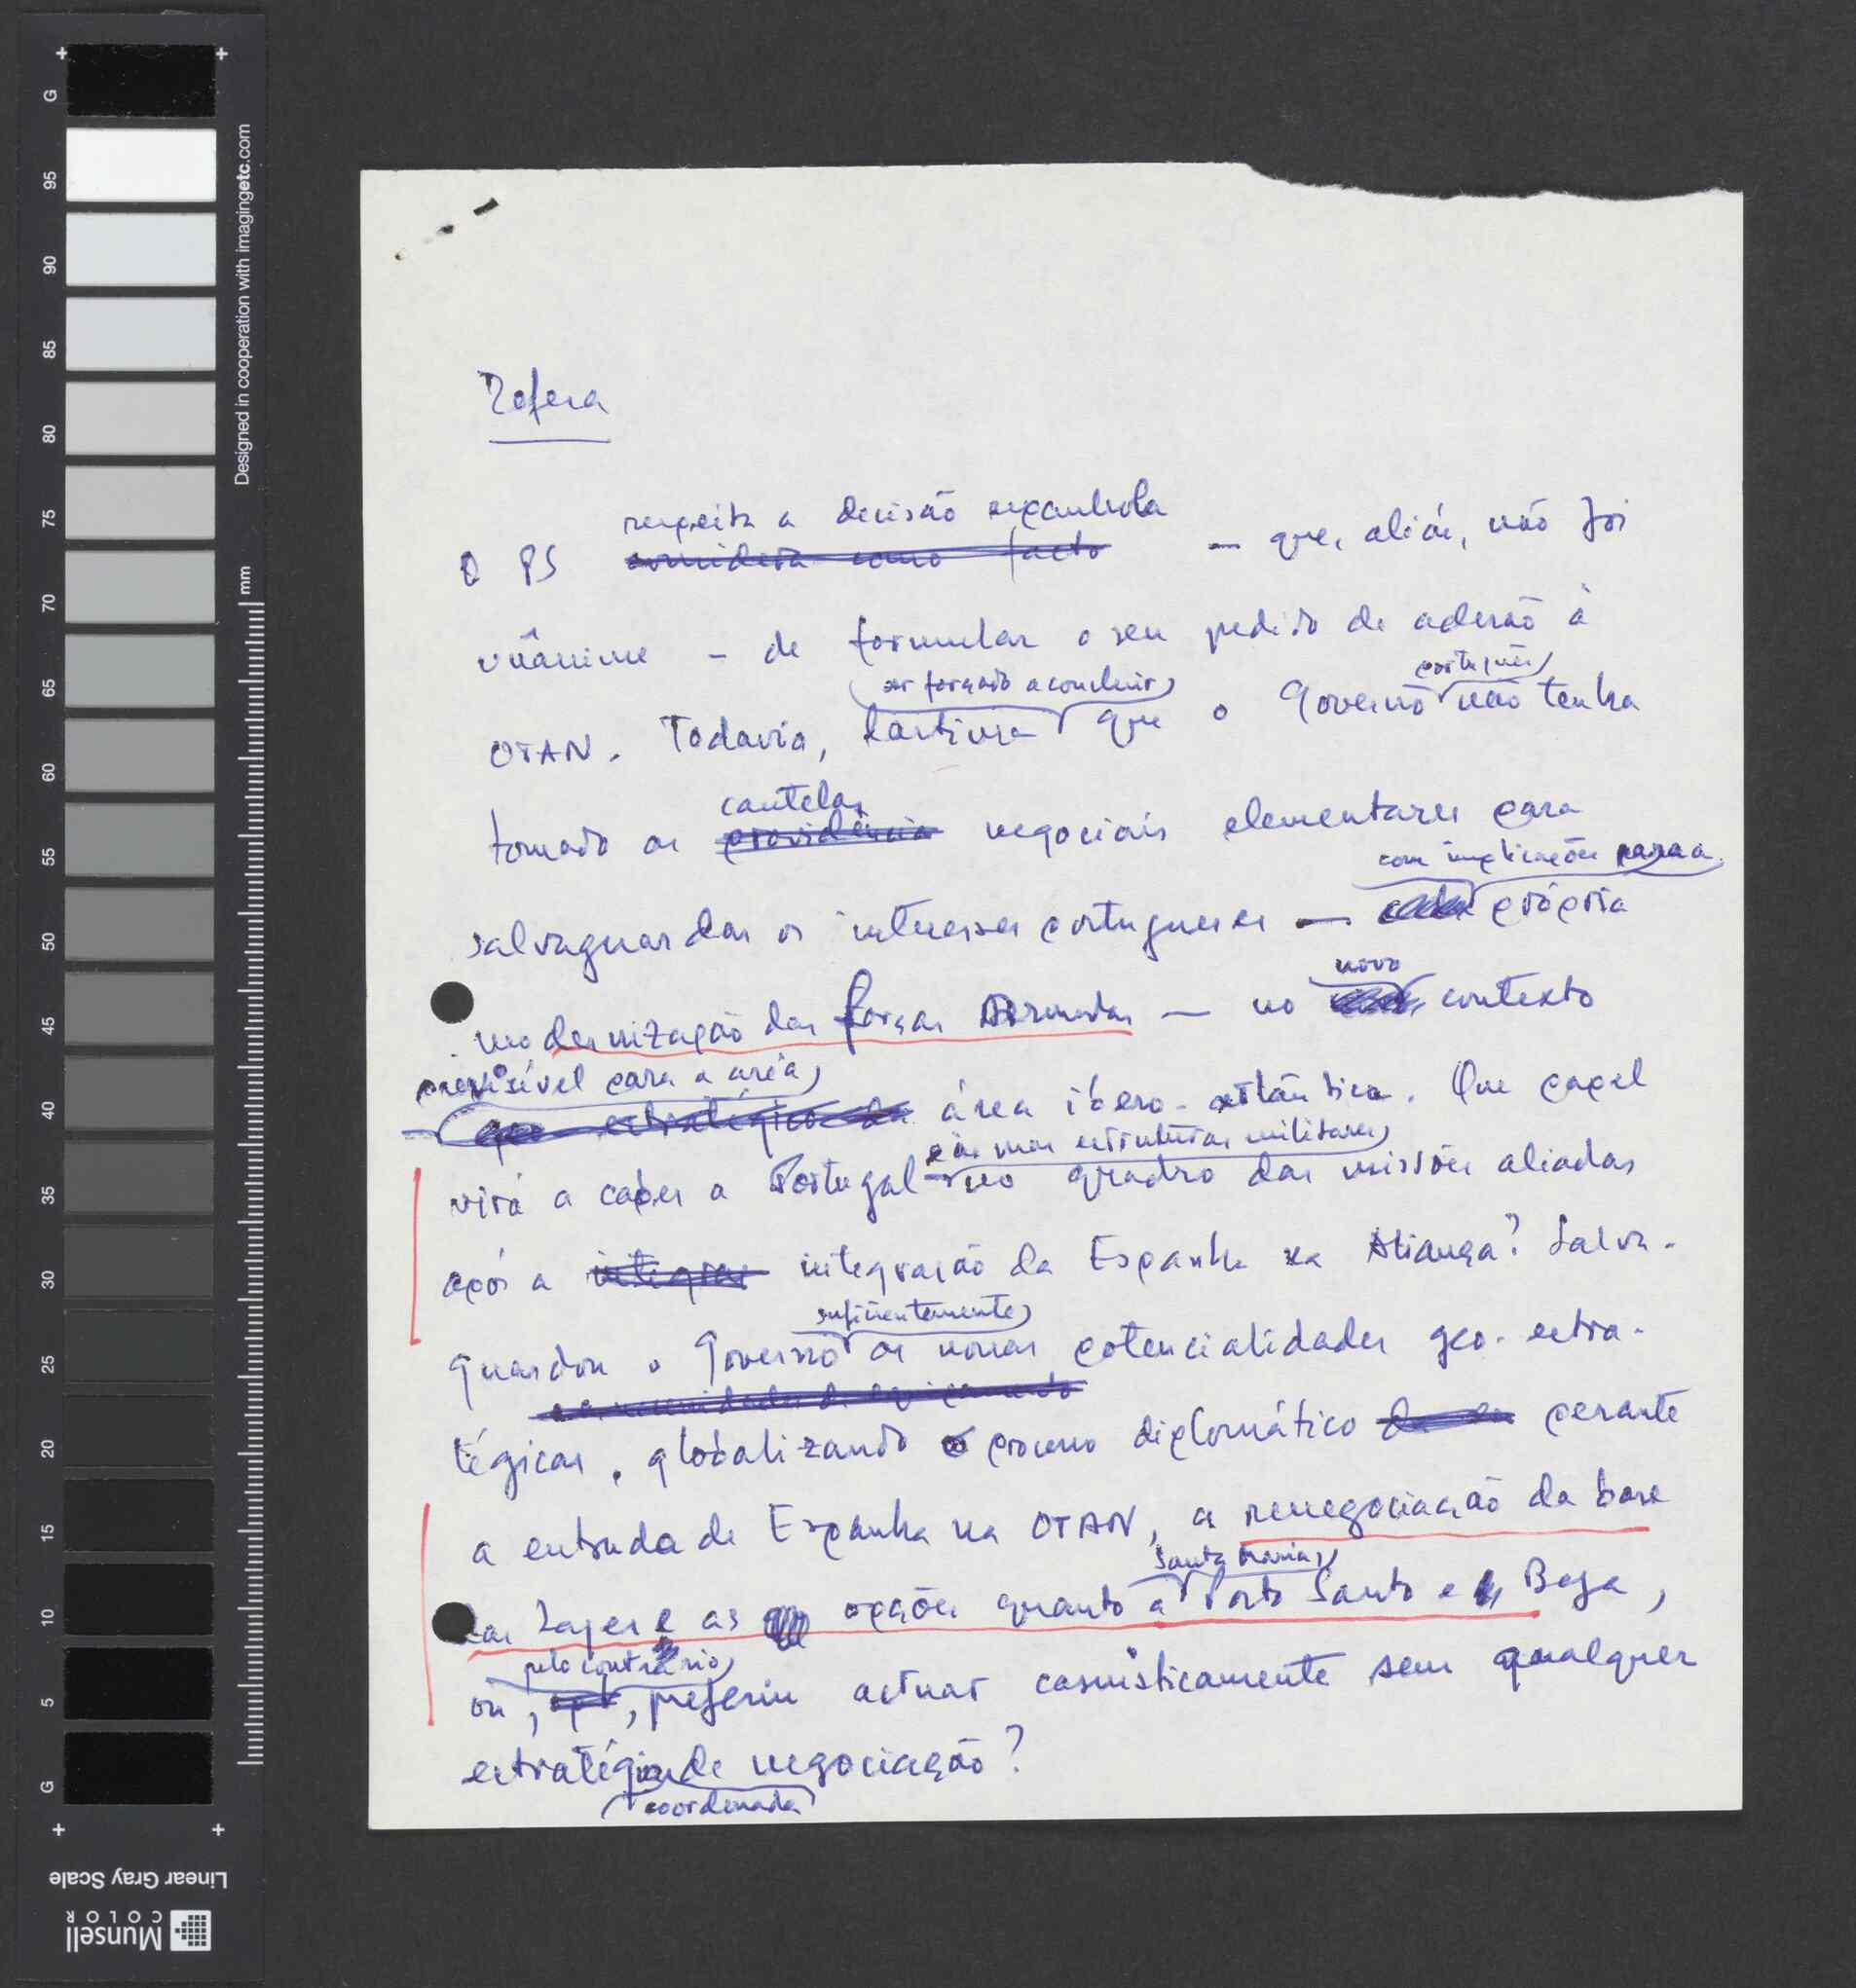 Defesa
respeita a decisão espanhola
O PS considera como facto — que, aliás, não foi
unânime – de formular o seu pedido de adesão à
ser forçado a concluir português
OTAN. Todavia, lastima que o Governo não tenha
cautelas
tomado as providência negociais elementares para
com implicações para a
salvaguardar os interesses portugueses — própria
novo
modernização das Forças Armadas — no contexto
previsível para a área
geo estratégico da área ibero-atlântica. Que papel
e às suas estruturas militares
virá a caber a Portugal no quadro das missões aliadas
após a integrar integração da Espanha na Aliança? Salva-
suficientemente
guardou o Governo as novas potencialidades geo-estra-
tégicas, globalizando o processo diplomático perante
a entrada de Espanha na OTAN, a renegociação da base
Santa Maria,
das Lajes e as opções quanto a Porto Santo e Beja,
pelo contrário
ou, , preferiu actuar casuisticamente sem qualquer
estratégia de negociação?
coordenada
G
95
90
85
80
75
70
65
60
55
50
45
40
35
30
25
20
15
10
5
G
Designed in cooperation with imagingetc.com
mm
Linear Gray Scale
Munsell
COLOR